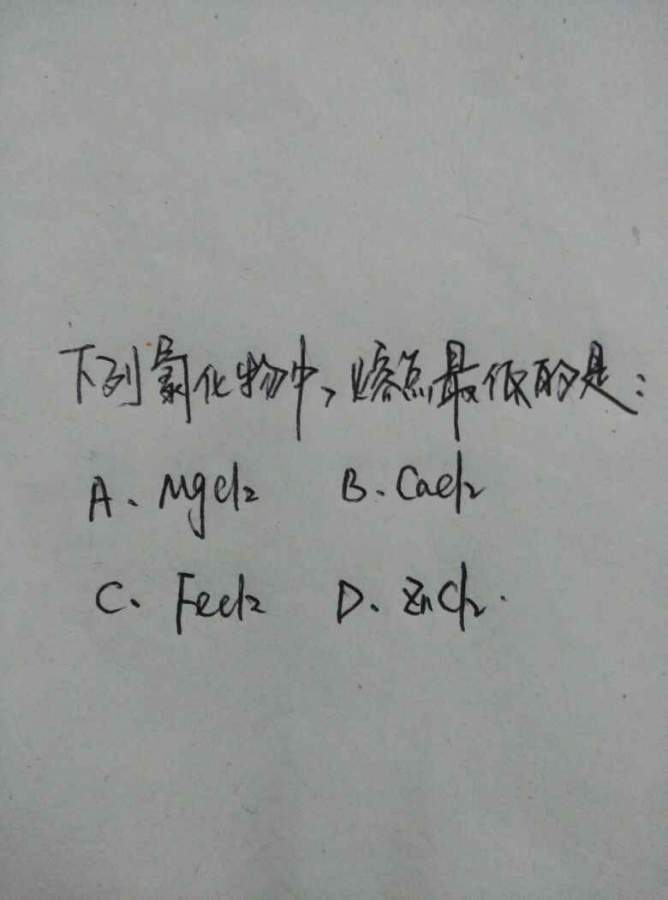 下列氯化物中，熔点最低的是：
A. MgCl2 B. CaCl2
C. FeCl2 D. ZnCl2.